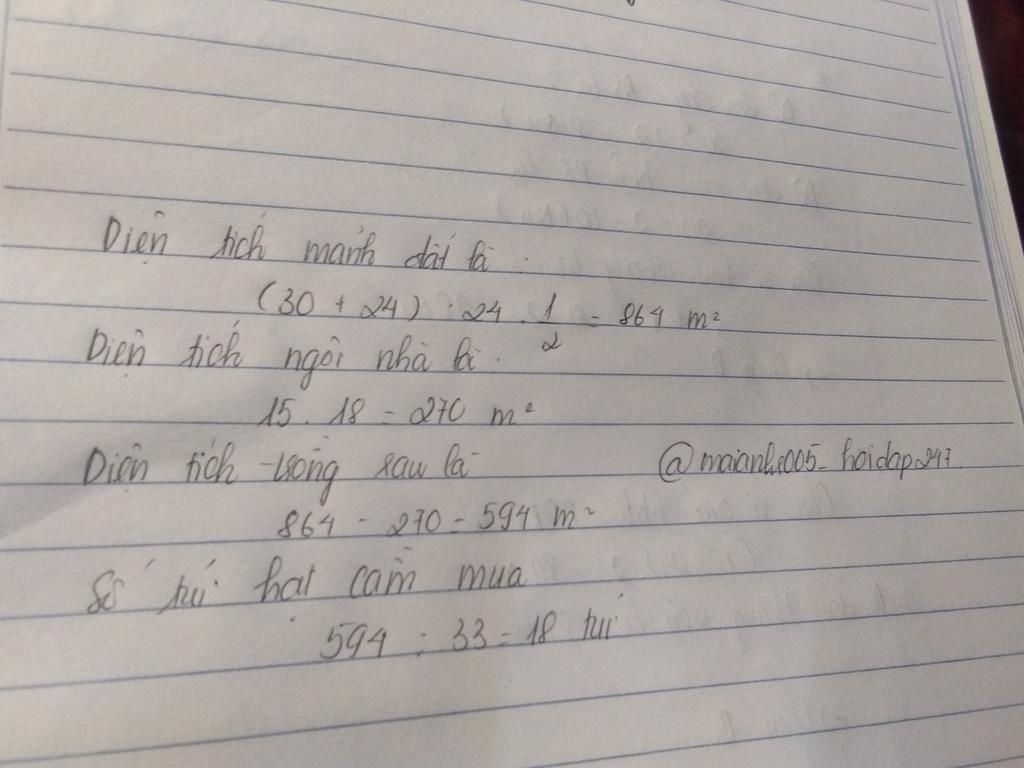 Diện tích mảnh đất là :
(30 + 24) . 24 . 1/2 = 864 m²
Diện tích ngôi nhà là :
15 . 18 = 270 m²
Diện tích trồng rau là
@maianhs005_hoidap247
864 - 270 = 594 m²
Số túi hạt cần mua
594 : 33 = 18 túi